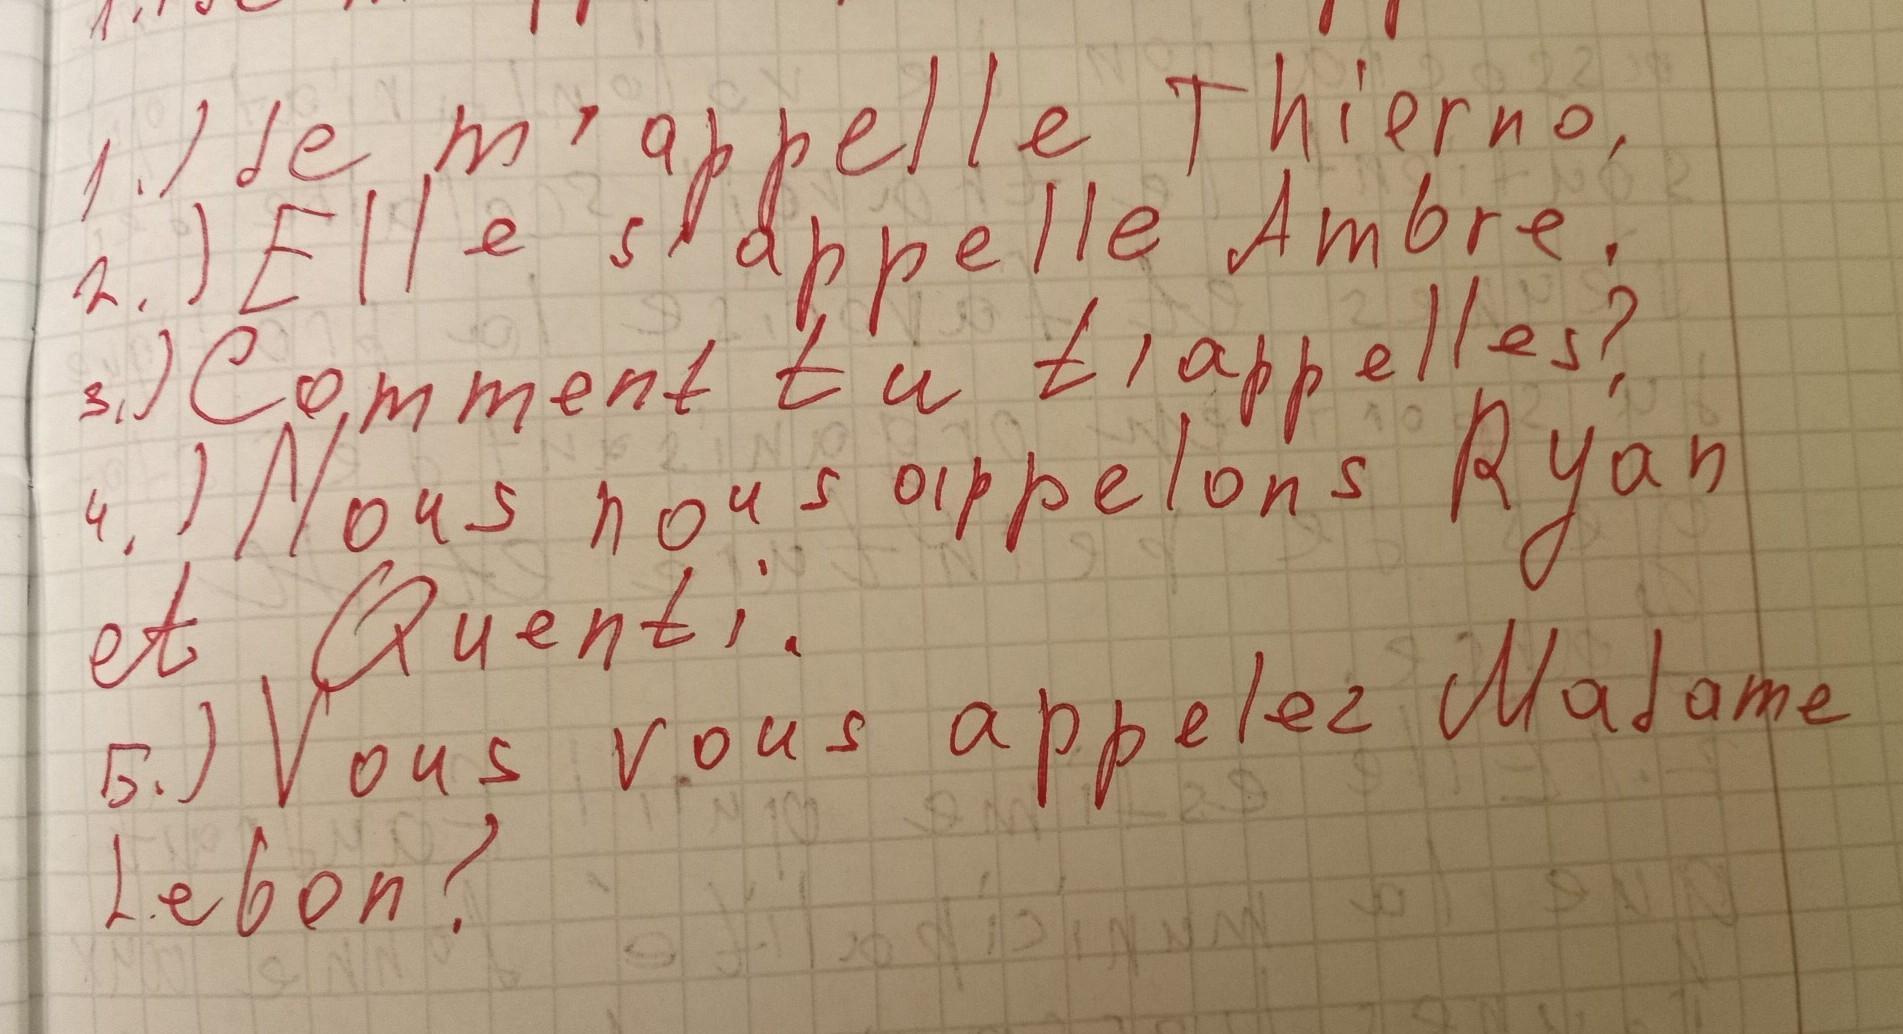 1.) Je m'appelle Thierno.
2.) Elle s'appelle Ambre.
3.) Comment tu t'appelles?
4.) Nous nous appelons Ryan
et Quenti.
5.) Vous vous appelez Madame
Lebon?